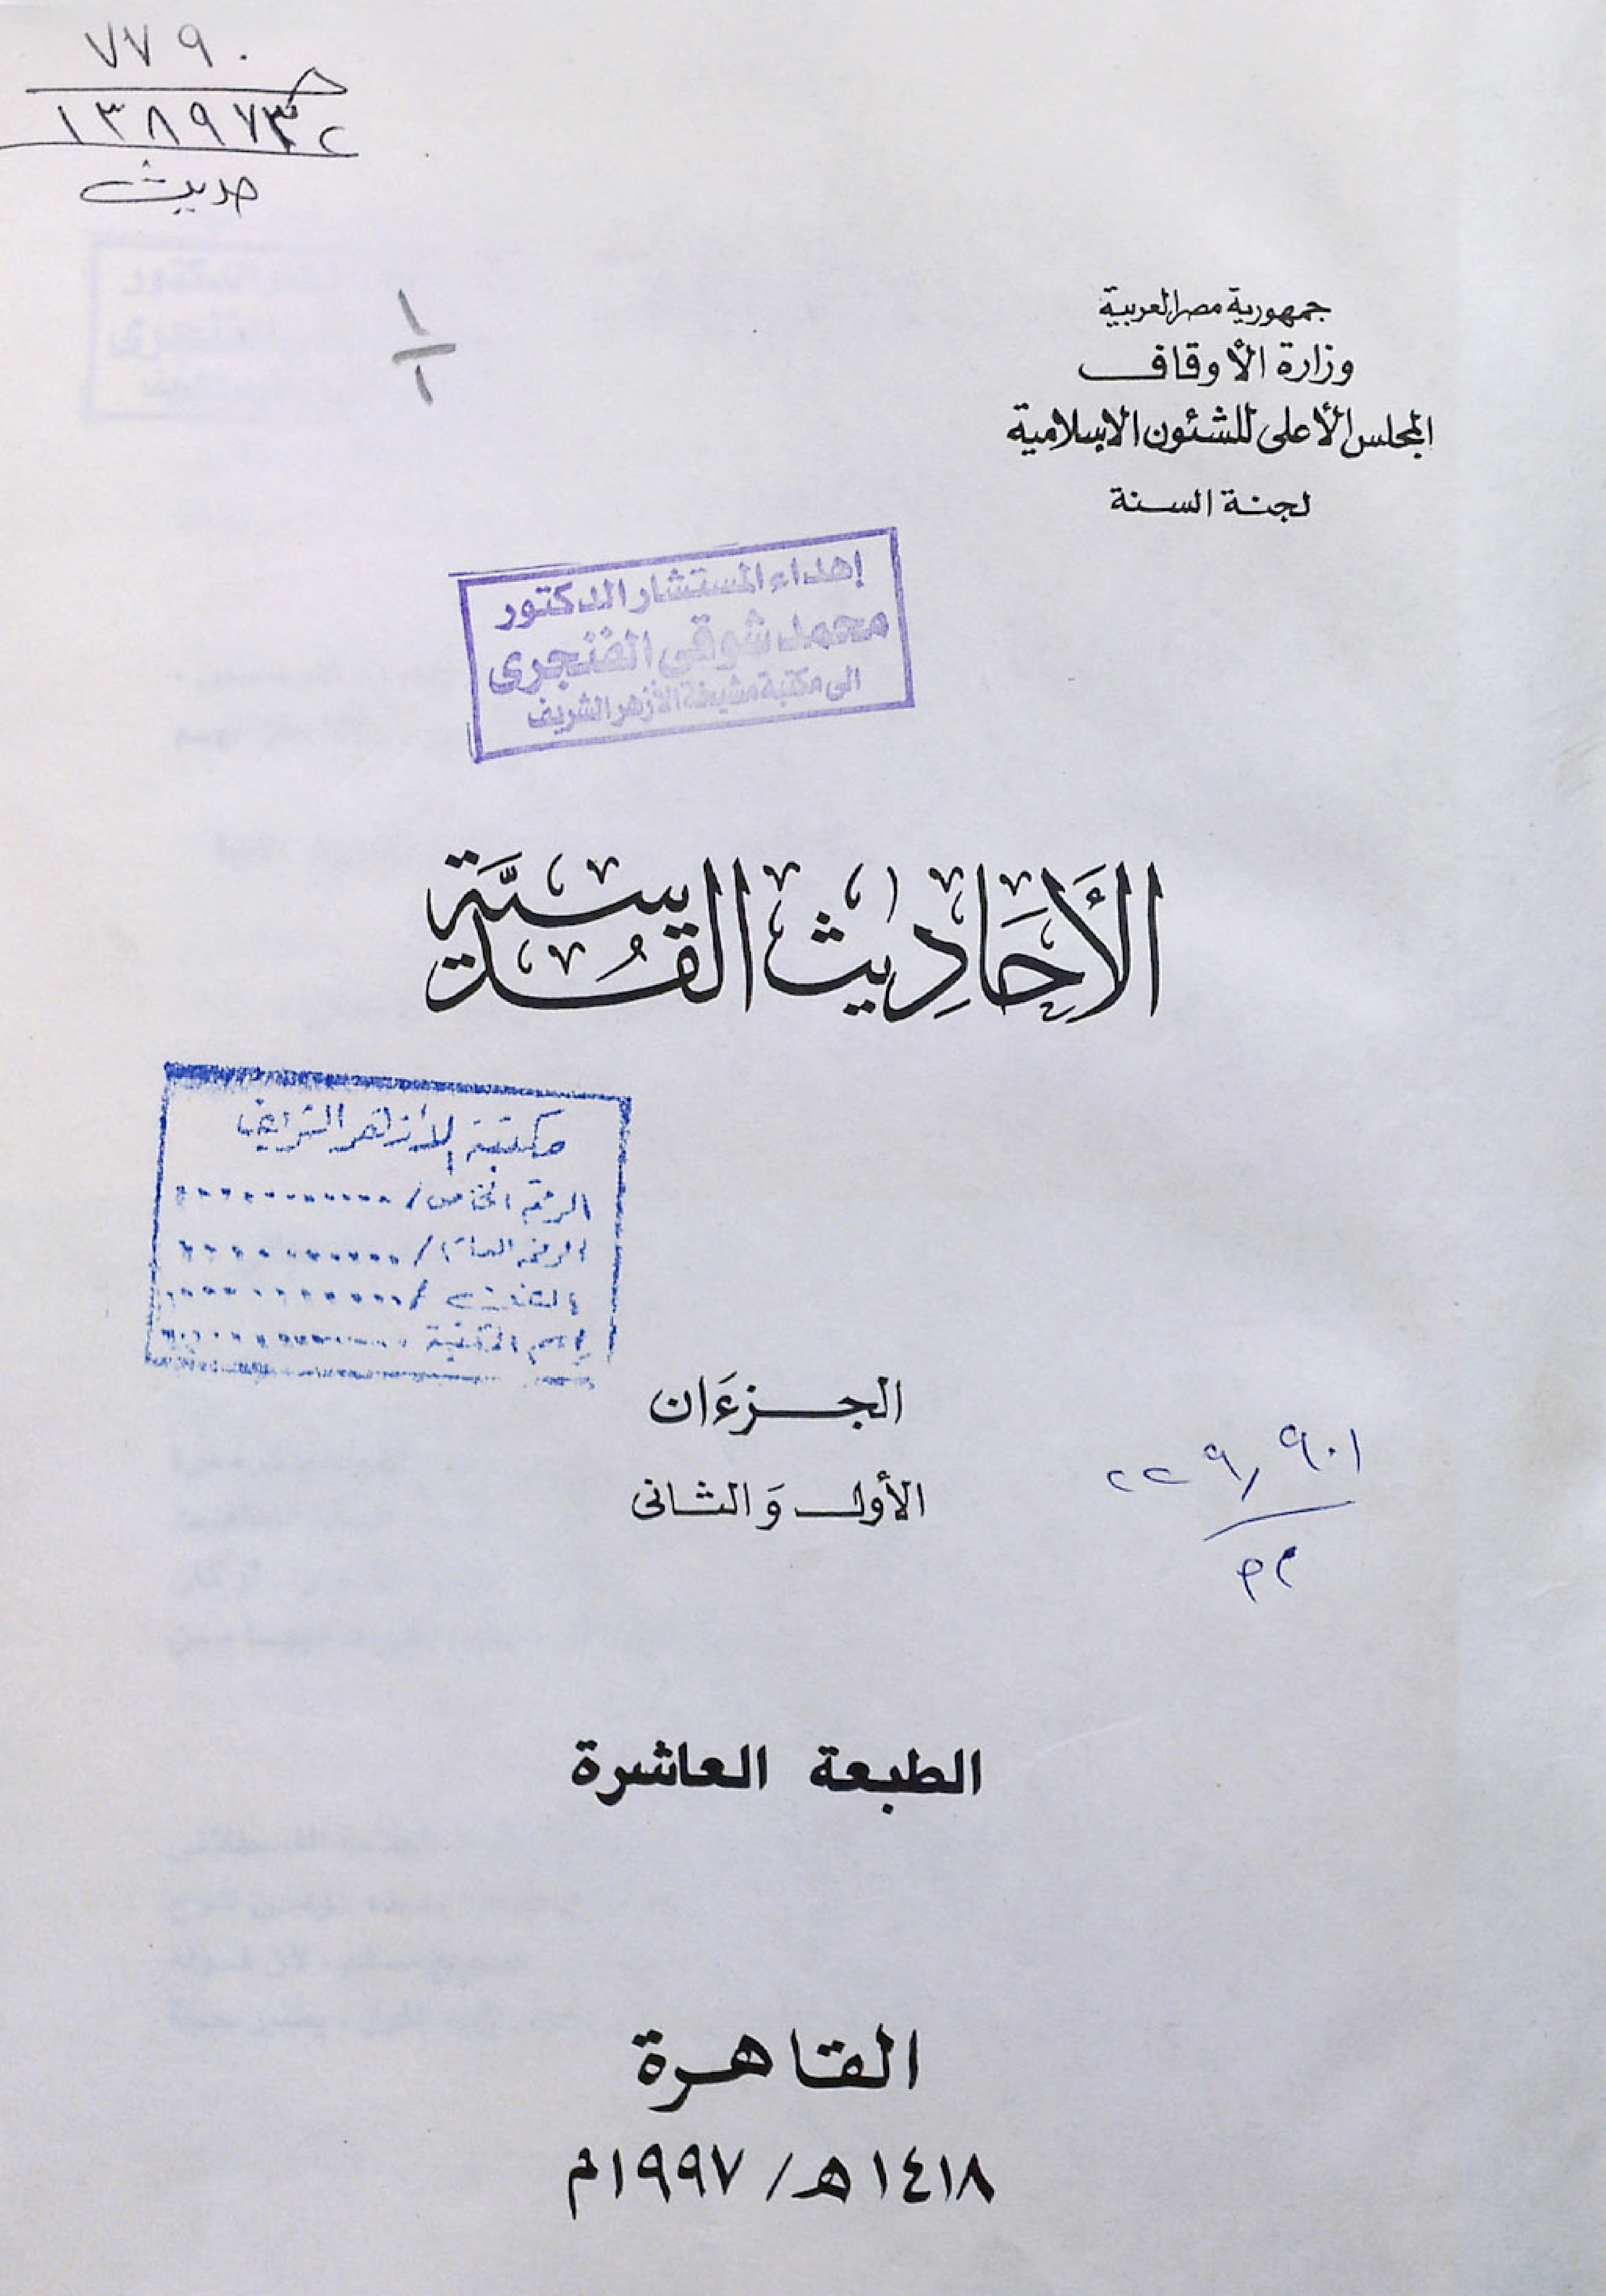 ٧٧٩٠
حديث
جمهورية مصر العربية
وزارة الأوقاف
المجلس الأعلى للشئون الإسلامية
لجنة السنة
١
١
إهداء المستشار الدكتور
محمد شوقي الفنجرى
الى مكتبة مشيخة الأزهر الشريف
الأَحَادِيث القُدسيَّة
مكتبة الأزهر الشريف
الرقم الخاص/............
الرقم العام/............
الفن/............
إسم المكتبة ............
الجزءَان
الأول وَالثانى
٢٢٩,٩٠١
الطبعة العاشرة
القاهرة
١٤١٨هـ/١٩٩٧م